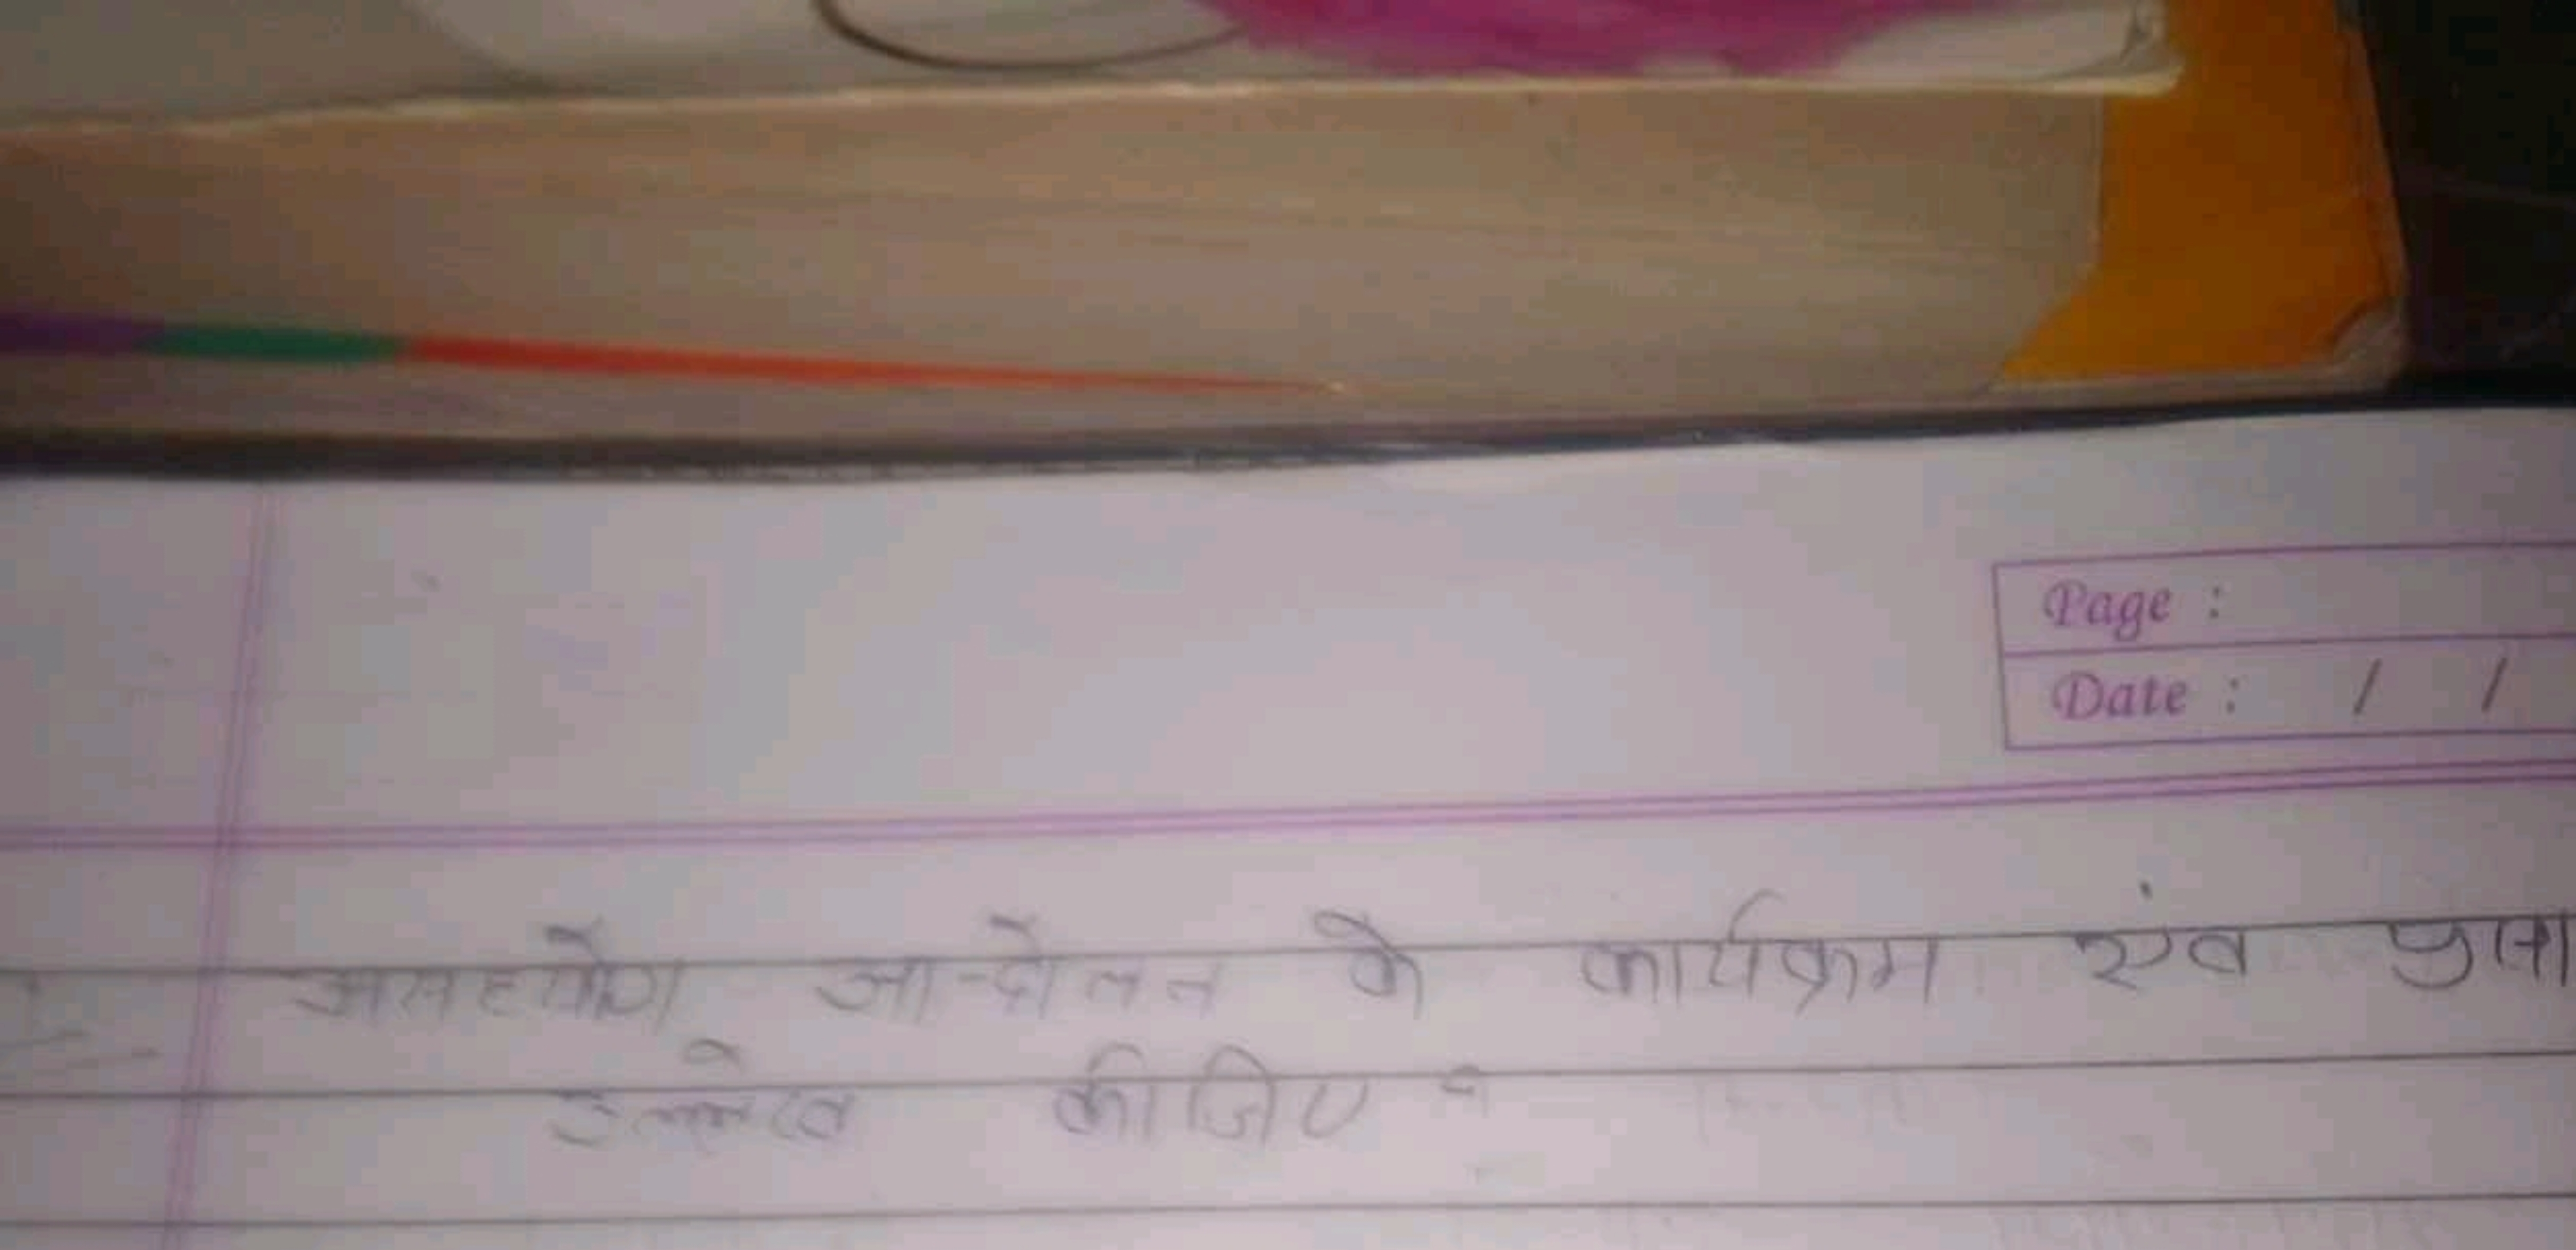 Page :
Date : / /
असहयोग आन्दोलन के कार्यक्रम एंव
उल्लेख कीजिए